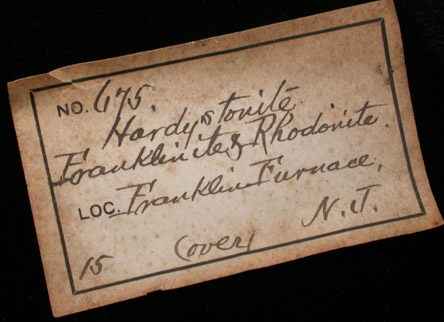 NO. 675.
Hardystonite
Franklinite & Rhodonite.
LOC. Franklin Furnace,
N. J.
15 (over)